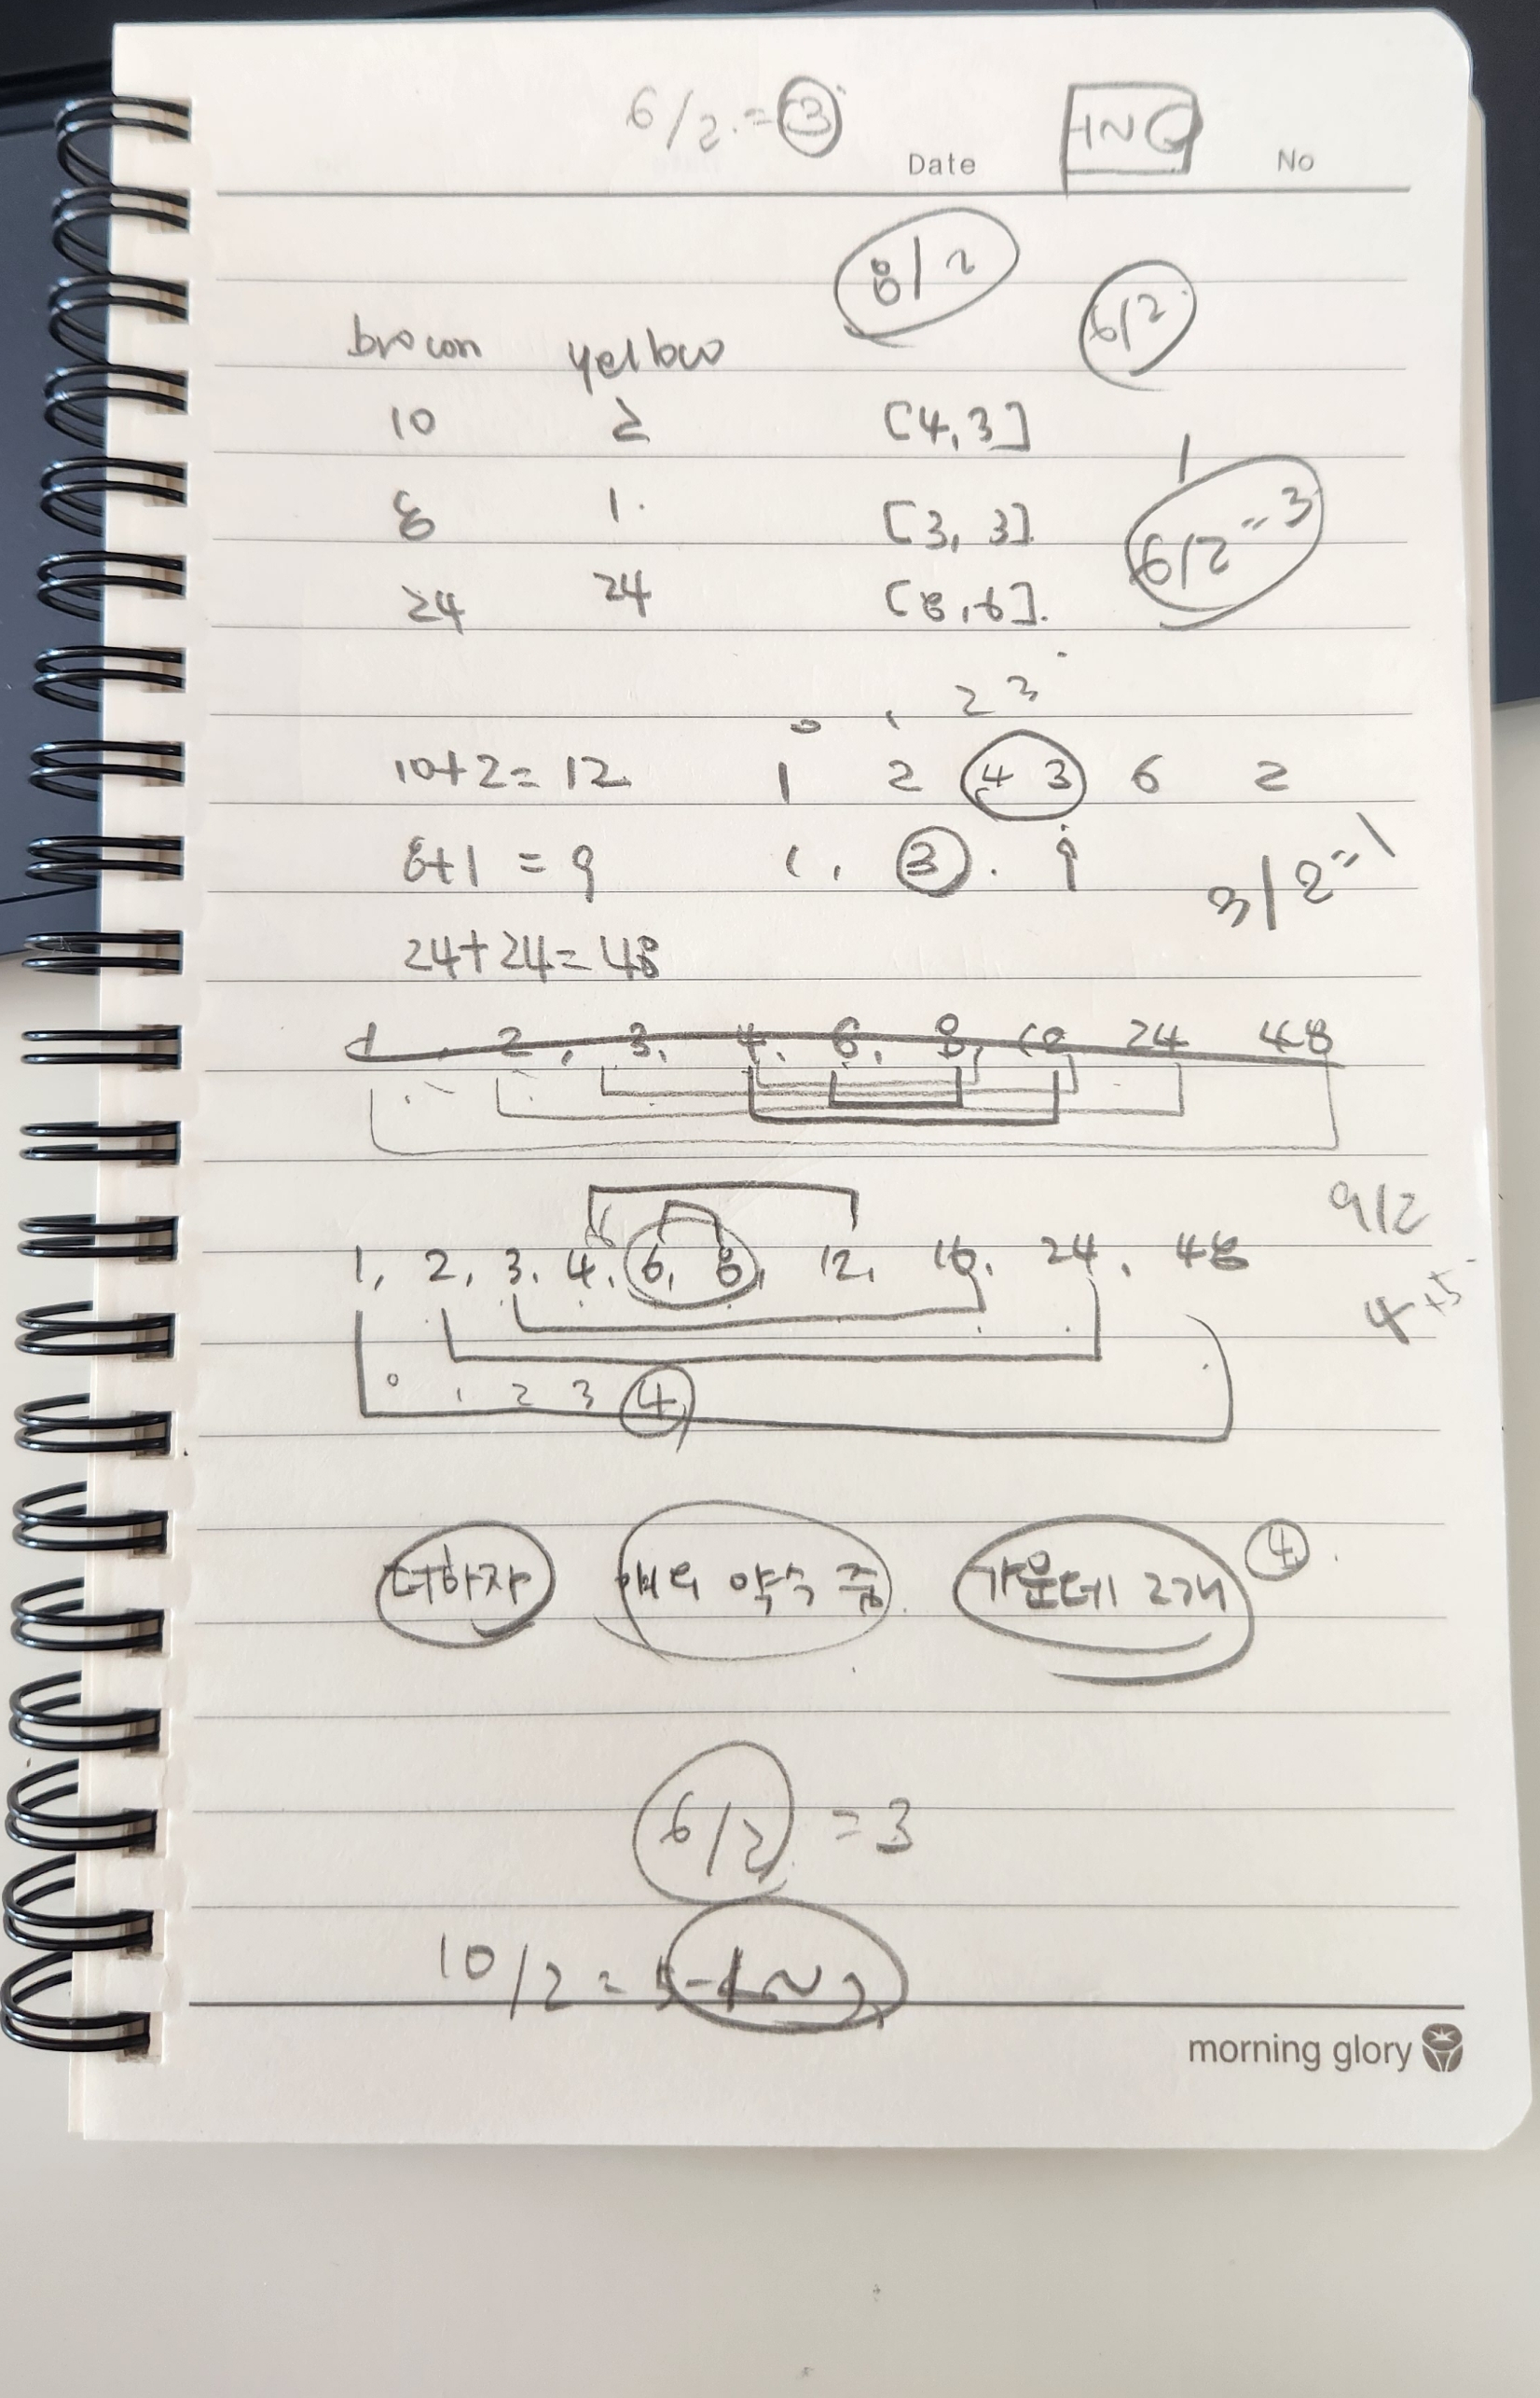 6/2.=3
Date No
8/2
6/2
brown yellow
10 2 [4,3]
8 1. [3, 3]
6/2=3
24 24 [8,6].
0 1 2 3
10+2=12 1 2 4 3 6 2
8+1=9 1, 3. 9
3/2=1
24+24=48
1, 2, 3, 4, 6, 8, 12 24 48
9/2
1, 2, 3, 4, 6, 8, 12, 16, 24, 48
4
0 1 2 3 4
더하자 약수 중 가운데 2개 4.
6/2 = 3
10/2 = 5
morning glory